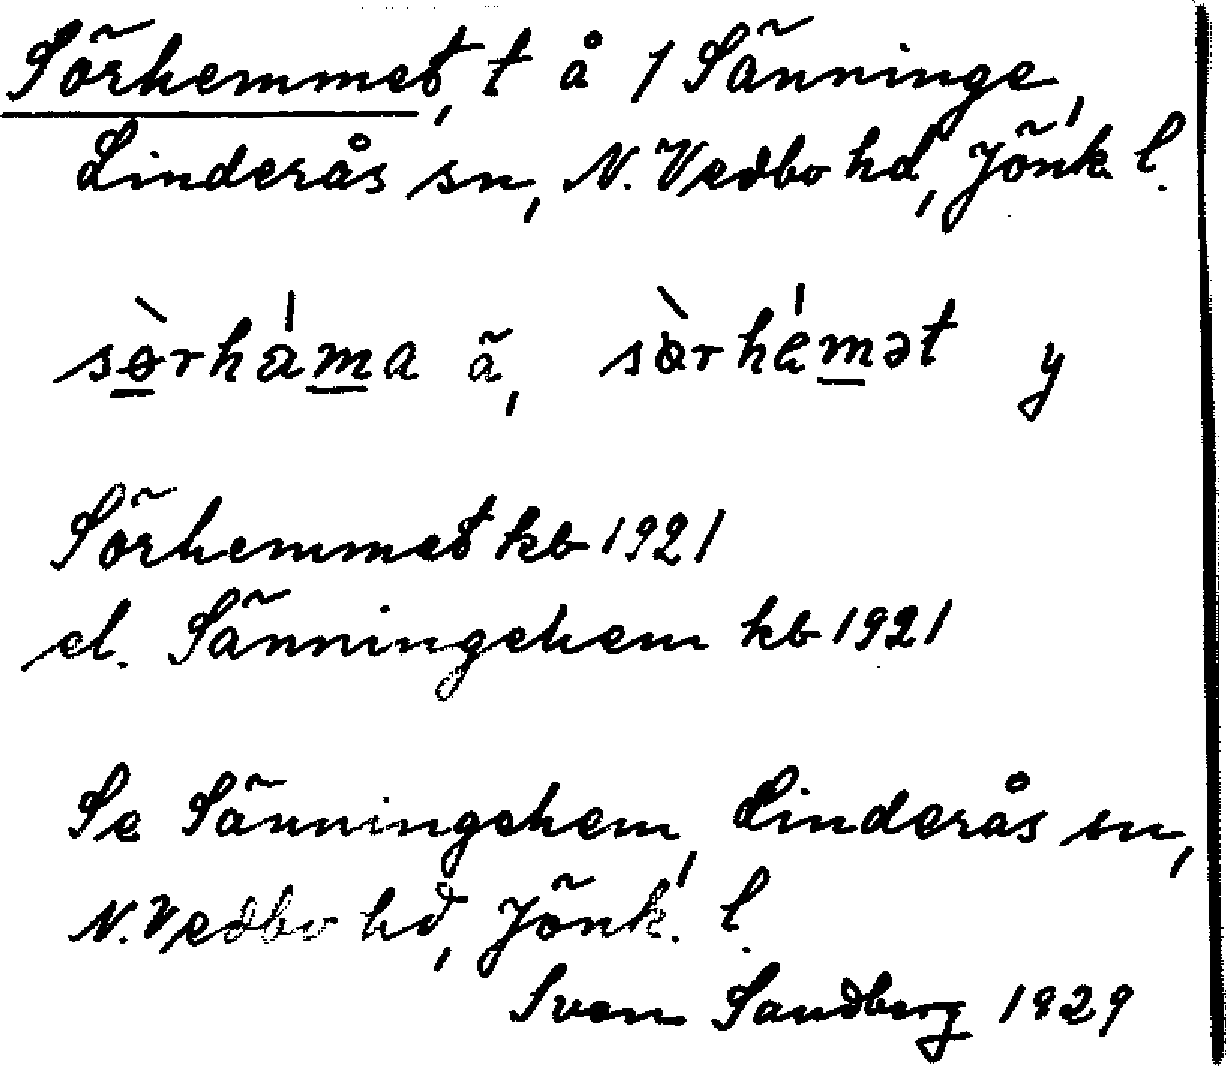 Sörhemmet, t å 1 Sänninge,
Linderås sn, N. Vedbo hd, Jönk. l.
sọ̀rháma ä, sàrhémət y
Sörhemmet kb 1921
el. Sänningehem kb 1921
Se Sänningehem, Linderås sn,
N. Vedbo hd, Jönk. l.
Sven Sandberg 1929